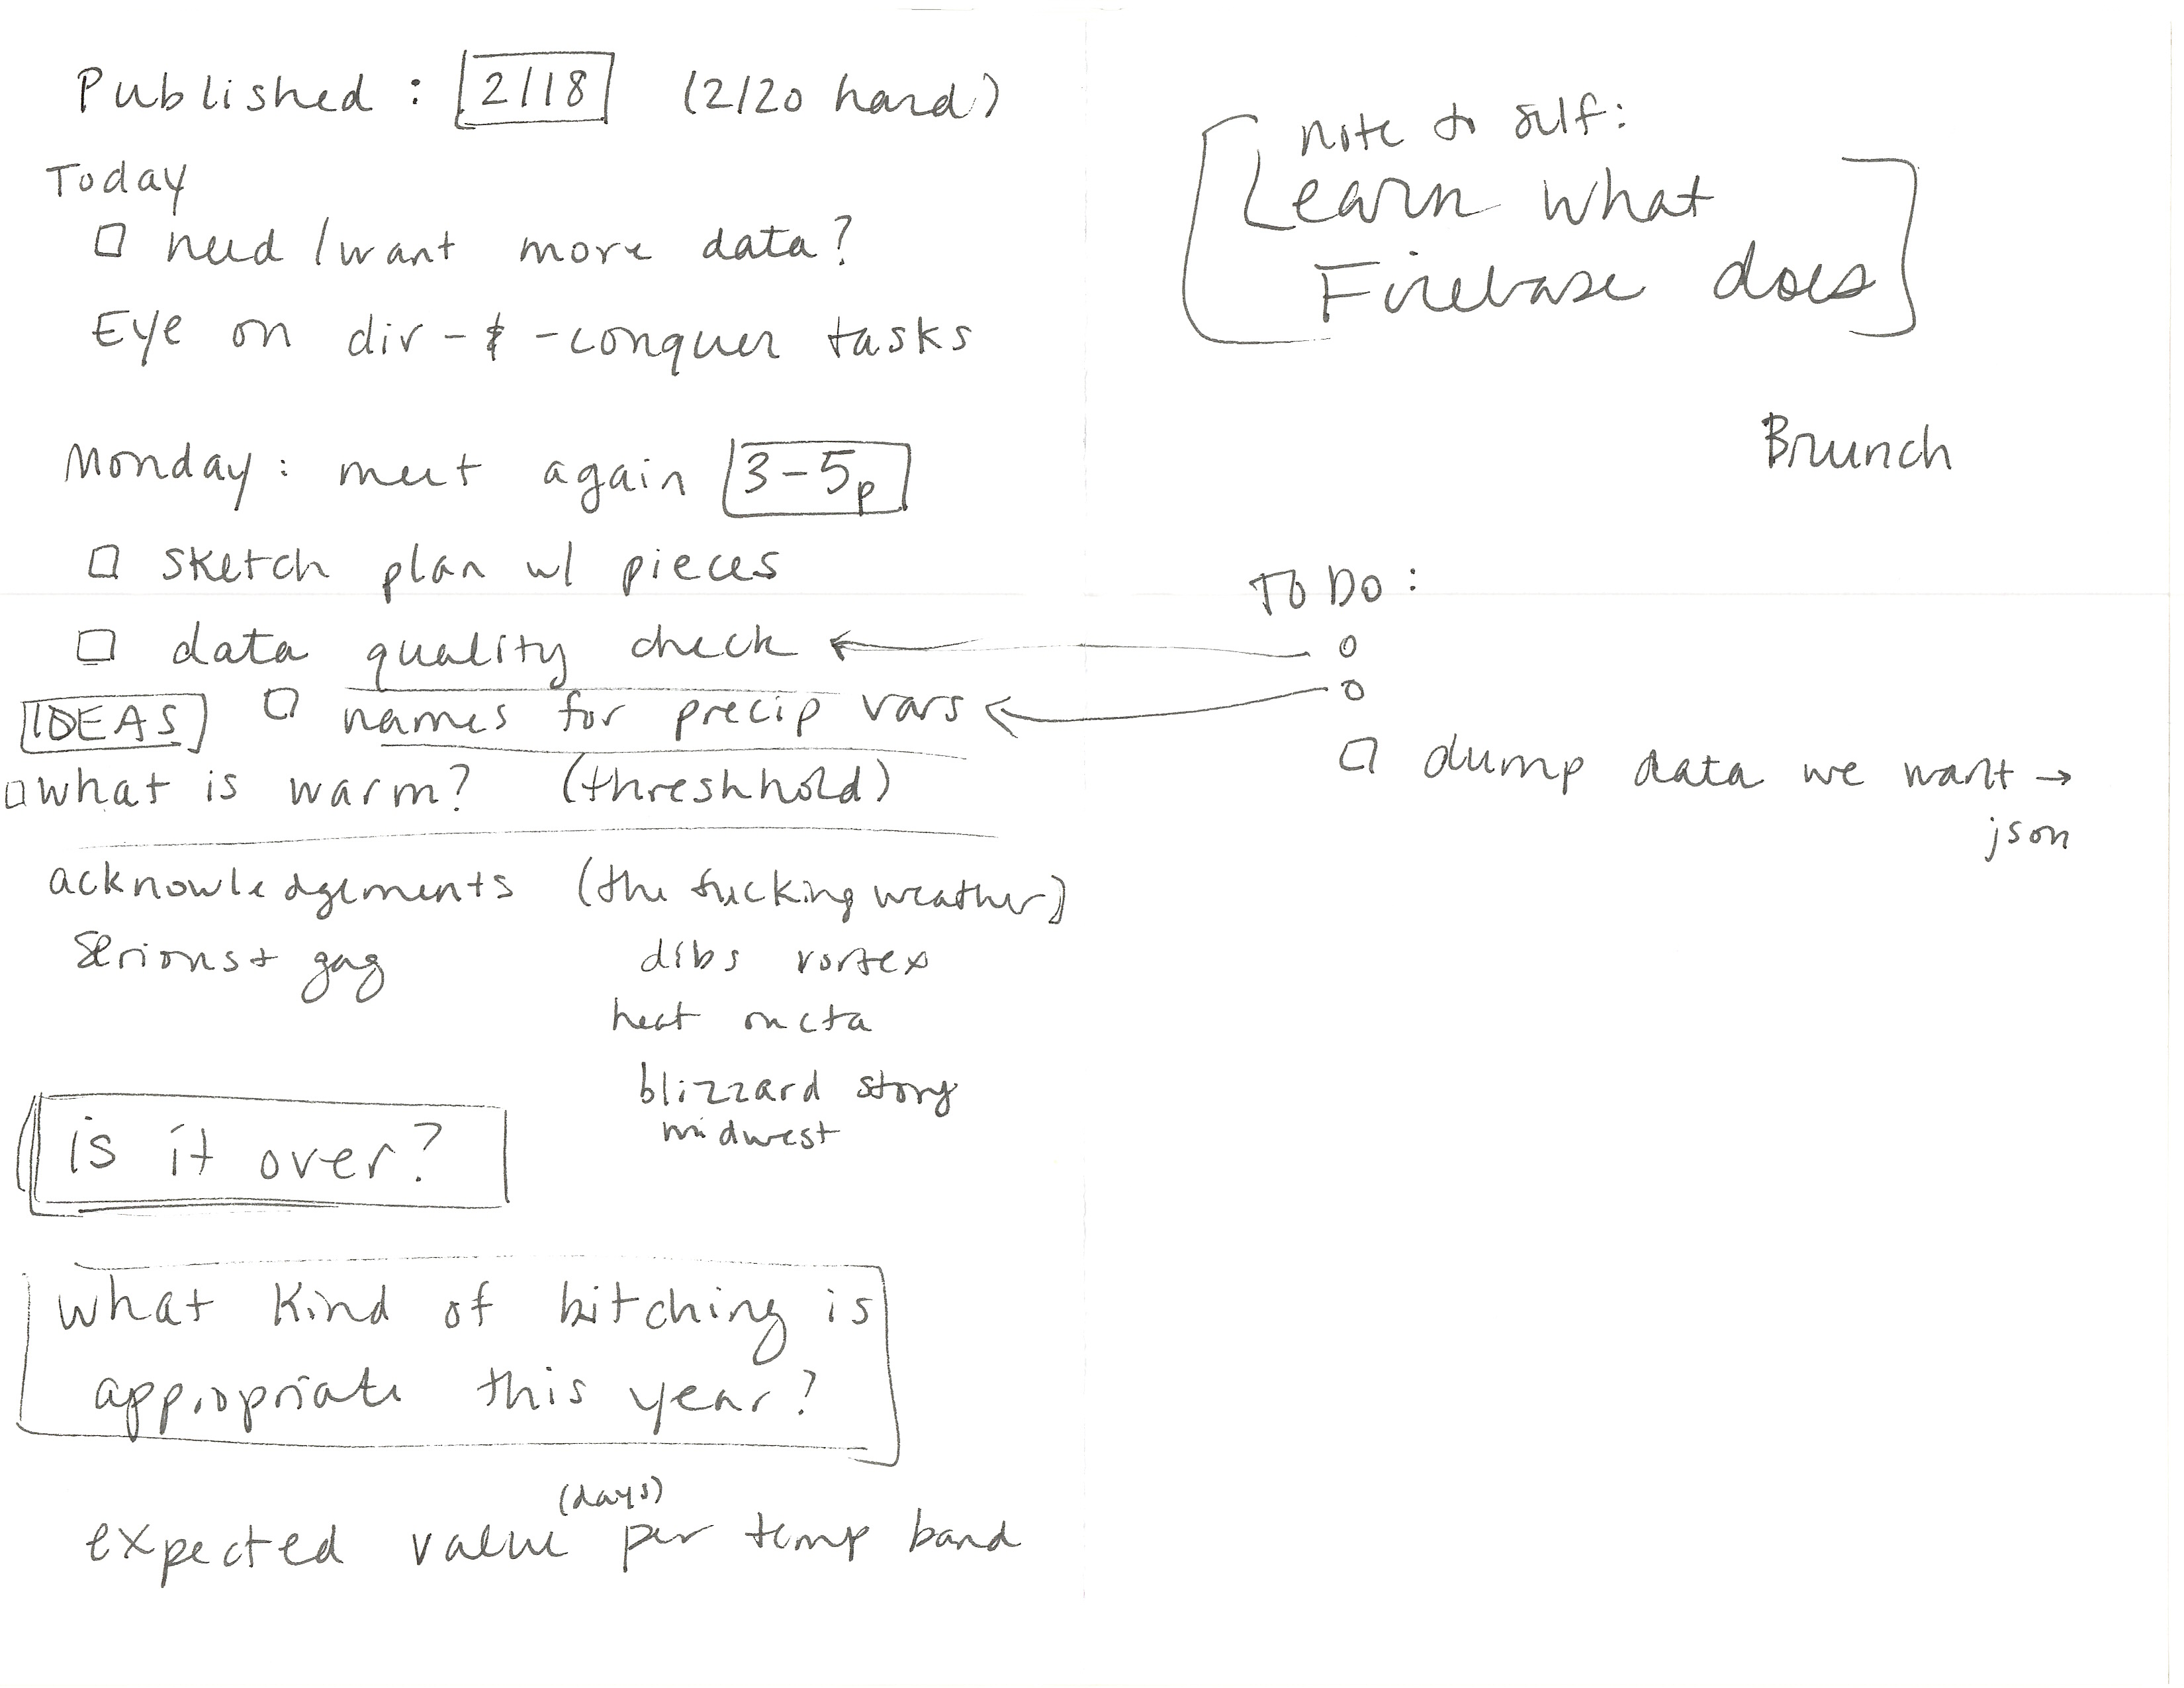 Published : 2/18 (2/20 hard)
Today
need / want more data?
Eye on div-&-conquer tasks
Monday : meet again 3-5p
sketch plan w/ pieces
data quality check
IDEAS names for precip vars
what is warm? (threshhold)
acknowledgements (the fucking weather)
Serious + gag
dibs vortex
heat on cta
blizzard story
midwest
is it over?
what kind of bitching is
appropriate this year?
(days)
expected value per temp band
note to self:
Learn what
Firebase does
Brunch
TO DO :
dump data we want →
json